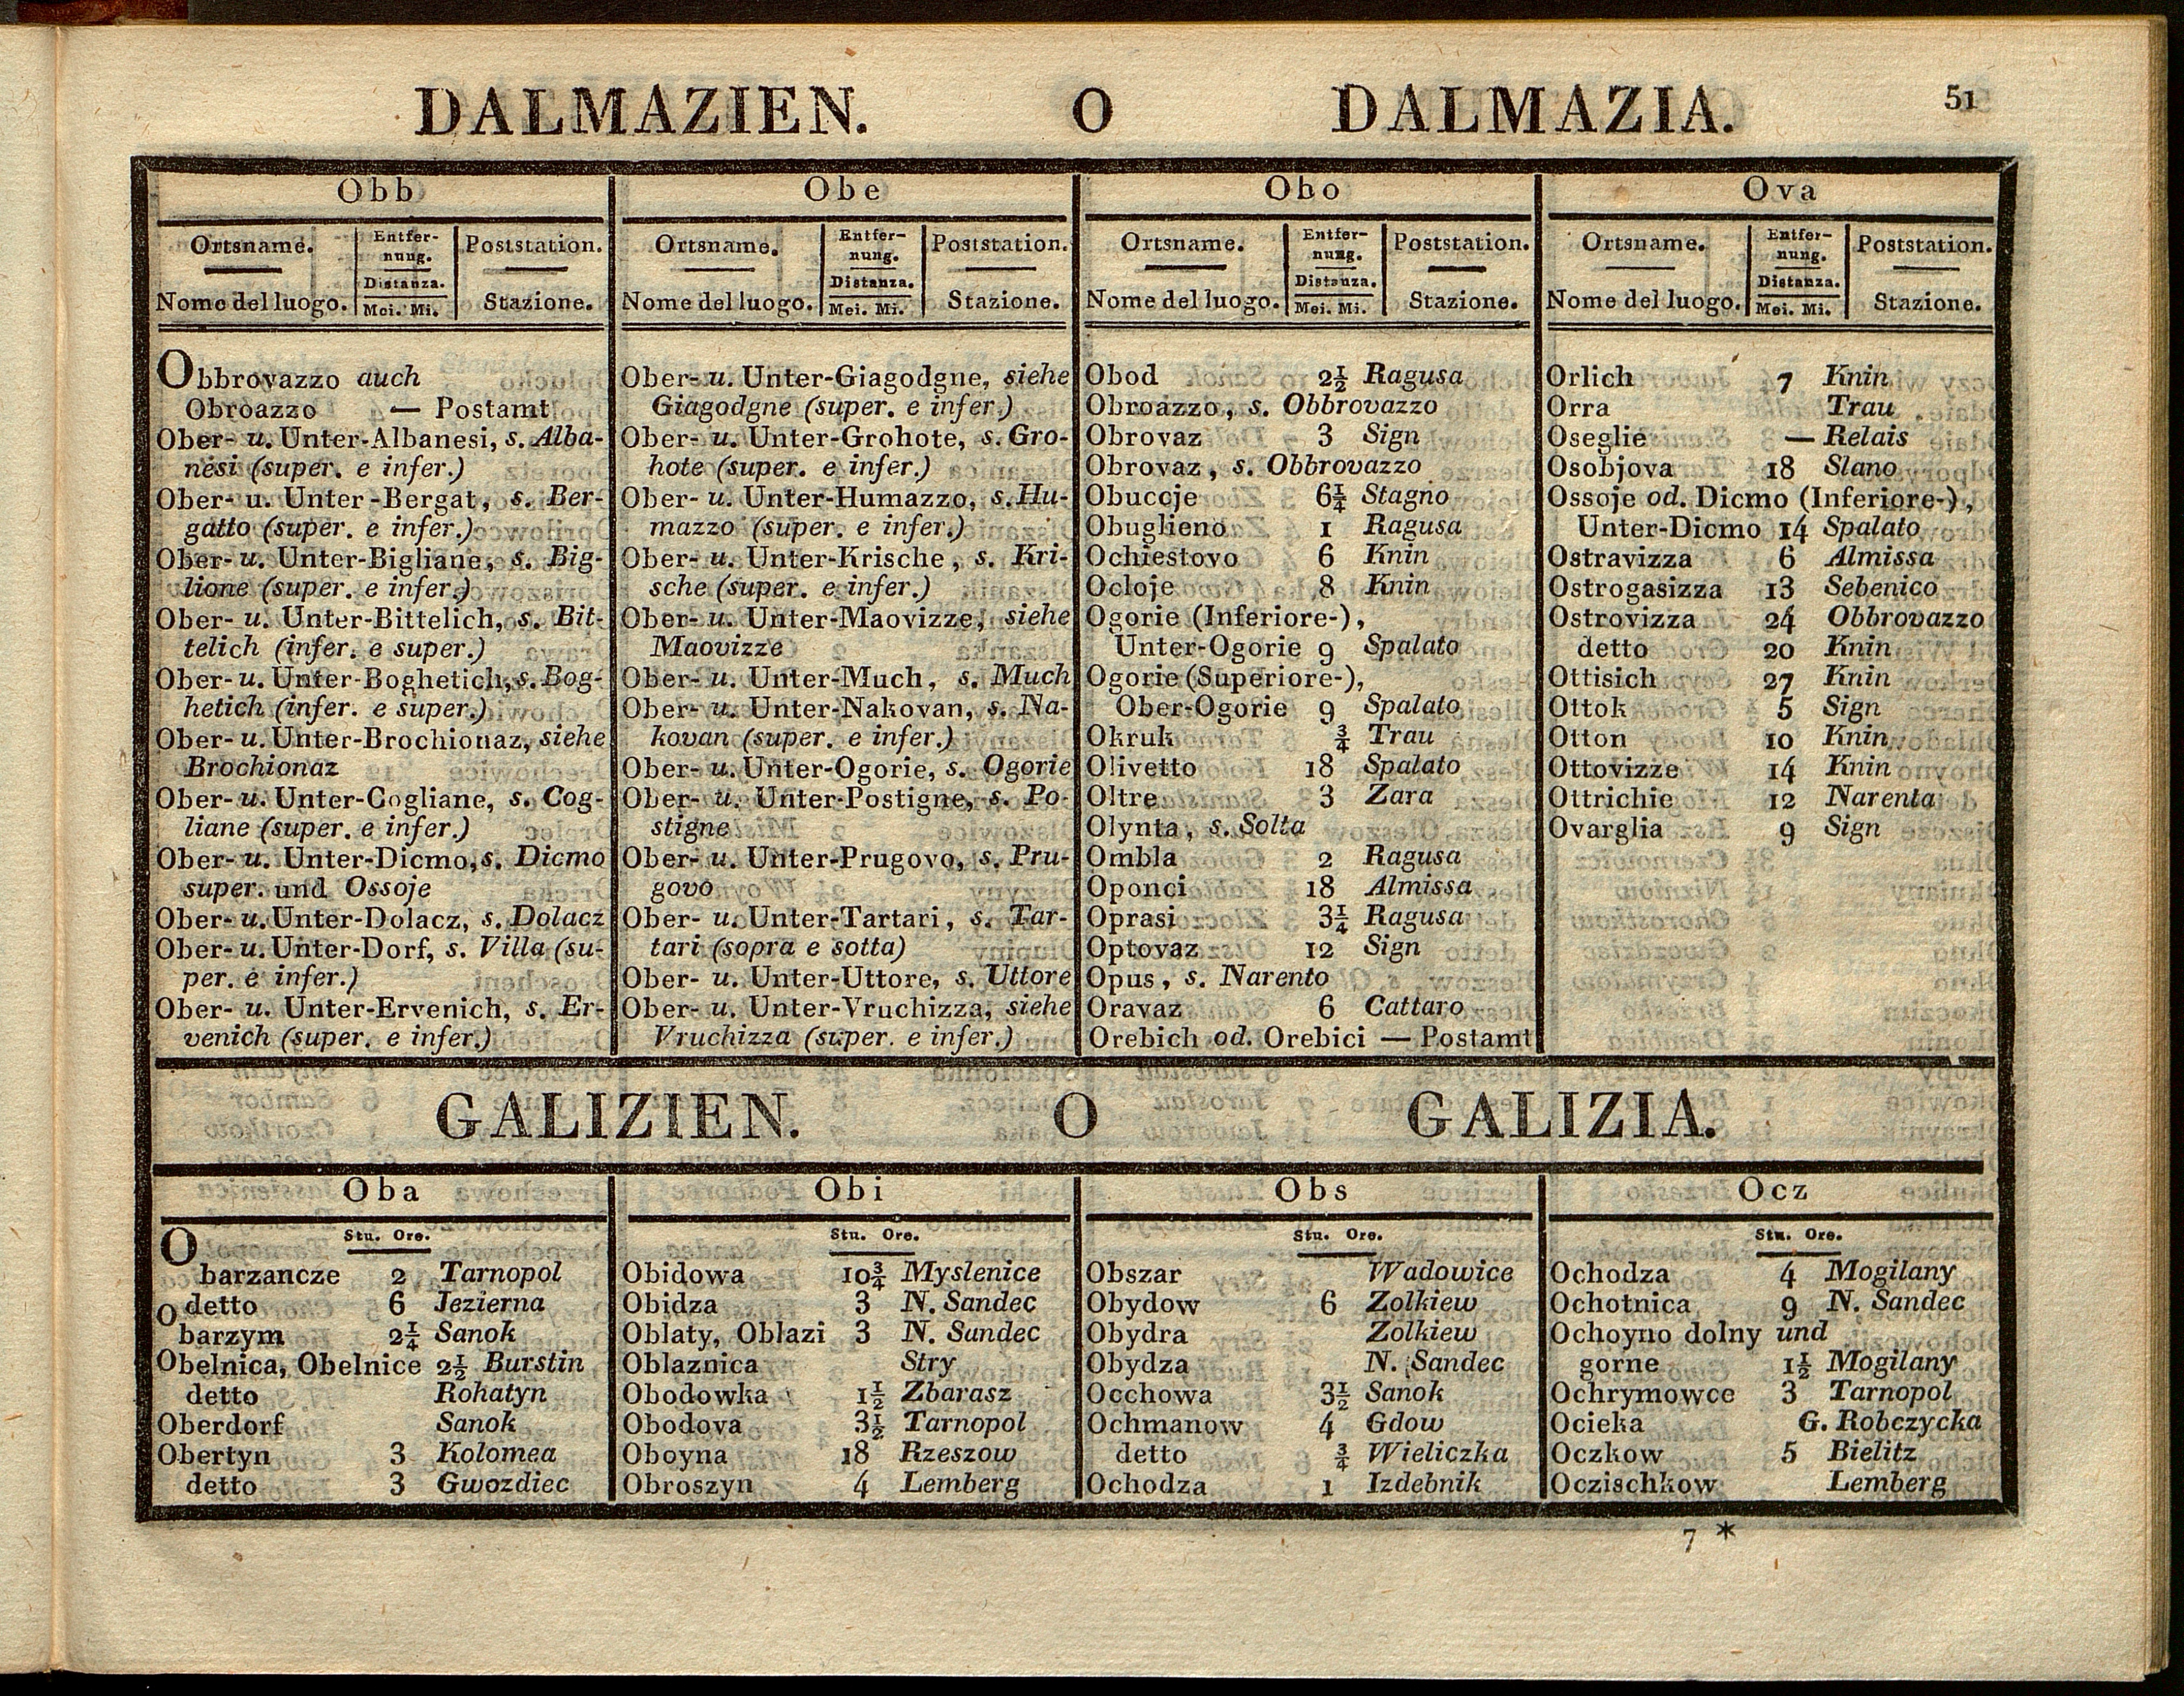 DALMAZIEN. O DALMAZIA. 51
Obb
Ortsname. Entfer- Poststation.
nung.
Distanza.
Nome del luogo. Mei. Mi. Stazione.
Obbrovazzo auch
Obroazzo — Postamt
Ober- u. Unter-Albanesi, s. Alba-
nesi (super. e infer.)
Ober- u. Unter-Bergat, s. Ber-
gatto (super. e infer.)
Ober- u. Unter-Bigliane, s. Big-
lione (super. e infer.)
Ober- u. Unter-Bittelich, s. Bit-
telich (infer. e super.)
Ober- u. Unter-Boghetich, s. Bog-
hetich (infer. e super.)
Ober- u. Unter-Brochionaz, siehe
Brochionaz
Ober- u. Unter-Cogliane, s. Cog-
liane (super. e infer.)
Ober- u. Unter-Dicmo, s. Dicmo
super. und Ossoje
Ober- u. Unter-Dolacz, s. Dolacz
Ober- u. Unter-Dorf, s. Villa (su-
per. e infer.)
Ober- u. Unter-Ervenich, s. Er-
venich (super. e infer.)
Obe
Ortsname. Entfer- Poststation.
nung.
Distanza.
Nome del luogo. Mei. Mi. Stazione.
Ober- u. Unter-Giagodgne, siehe
Giagodgne (super. e infer.)
Ober- u. Unter-Grohote, s. Gro-
hote (super. e infer.)
Ober- u. Unter-Humazzo, s. Hu-
mazzo (super. e infer.)
Ober- u. Unter-Krische, s. Kri-
sche (super. e infer.)
Ober- u. Unter-Maovizze, siehe
Maovizze
Ober- u. Unter-Much, s. Much
Ober- u. Unter-Nakovan, s. Na-
kovan (super. e infer.)
Ober- u. Unter-Ogorie, s. Ogorie
Ober- u. Unter-Postigne, s. Po-
stigne
Ober- u. Unter-Prugovo, s. Pru-
govo
Ober- u. Unter-Tartari, s. Tar-
tari (sopra e sotta)
Ober- u. Unter-Uttore, s. Uttore
Ober- u. Unter-Vruchizza, siehe
Vruchizza (super. e infer.)
Obo
Ortsname. Entfer- Poststation.
nung.
Distanza.
Nome del luogo. Mei. Mi. Stazione.
Obod 2½ Ragusa
Obroazzo, s. Obbrovazzo
Obrovaz 3 Sign
Obrovaz, s. Obbrovazzo
Obuccje 6¼ Stagno
Obuglieno 1 Ragusa
Ochiestovo 6 Knin
Ocloje 8 Knin
Ogorie (Inferiore-),
Unter-Ogorie 9 Spalato
Ogorie (Superiore-),
Ober-Ogorie 9 Spalato
Okruk ¾ Trau
Olivetto 18 Spalato
Oltre 3 Zara
Olynta, s. Solta
Ombla 2 Ragusa
Oponci 18 Almissa
Oprasi 3¼ Ragusa
Optovaz 12 Sign
Opus, s. Narento
Oravaz 6 Cattaro
Orebich od. Orebici — Postamt
Ova
Ortsname. Entfer- Poststation.
nung.
Distanza.
Nome del luogo. Mei. Mi. Stazione.
Orlich 7 Knin
Orra Trau
Oseglie — Relais
Osobjova 18 Slano
Ossoje od. Dicmo (Inferiore-),
Unter-Dicmo 14 Spalato
Ostravizza 6 Almissa
Ostrogasizza 13 Sebenico
Ostrovizza 24 Obbrovazzo
detto 20 Knin
Ottisich 27 Knin
Ottok 5 Sign
Otton 10 Knin
Ottovizze 14 Knin
Ottrichie 12 Narenta
Ovarglia 9 Sign
GALIZIEN. O GALIZIA.
Oba
Stu. Ore.
Obarzancze 2 Tarnopol
detto 6 Jezierna
Obarzym 2¼ Sanok
Obelnica, Obelnice 2½ Burstin
detto Rohatyn
Oberdorf Sanok
Obertyn 3 Kolomea
detto 3 Gwozdiec
Obi
Stu. Ore.
Obidowa 10¾ Myslenice
Obidza 3 N. Sandec
Oblaty, Oblazi 3 N. Sandec
Oblaznica Stry
Obodowka 1½ Zbarasz
Obodova 3½ Tarnopol
Oboyna 18 Rzeszow
Obroszyn 4 Lemberg
Obs
Stu. Ore.
Obszar Wadowice
Obydow 6 Zolkiew
Obydra Zolkiew
Obydza N. Sandec
Occhowa 3½ Sanok
Ochmanow 4 Gdow
detto ¾ Wieliczka
Ochodza 1 Izdebnik
Ocz
Stu. Ore.
Ochodza 4 Mogilany
Ochotnica 9 N. Sandec
Ochoyno dolny und
gorne 1½ Mogilany
Ochrymowce 3 Tarnopol
Ocieka G. Robczycka
Oczkow 5 Bielitz
Oczischkow Lemberg
7 *